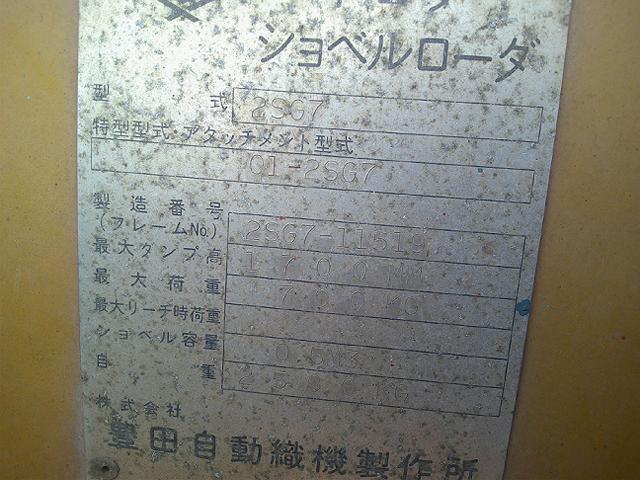 ショベルローダ
型 式 2SG7
特型型式・アタッチメント型式
01-2SG7
製造番号
(フレームNo.) 2SG7-11519
最大ダンプ高 1700MM
最大荷重 KG
最大リーチ時荷重
ショベル容量 M3
自 重 KG
株式会社
豊田自動織機製作所